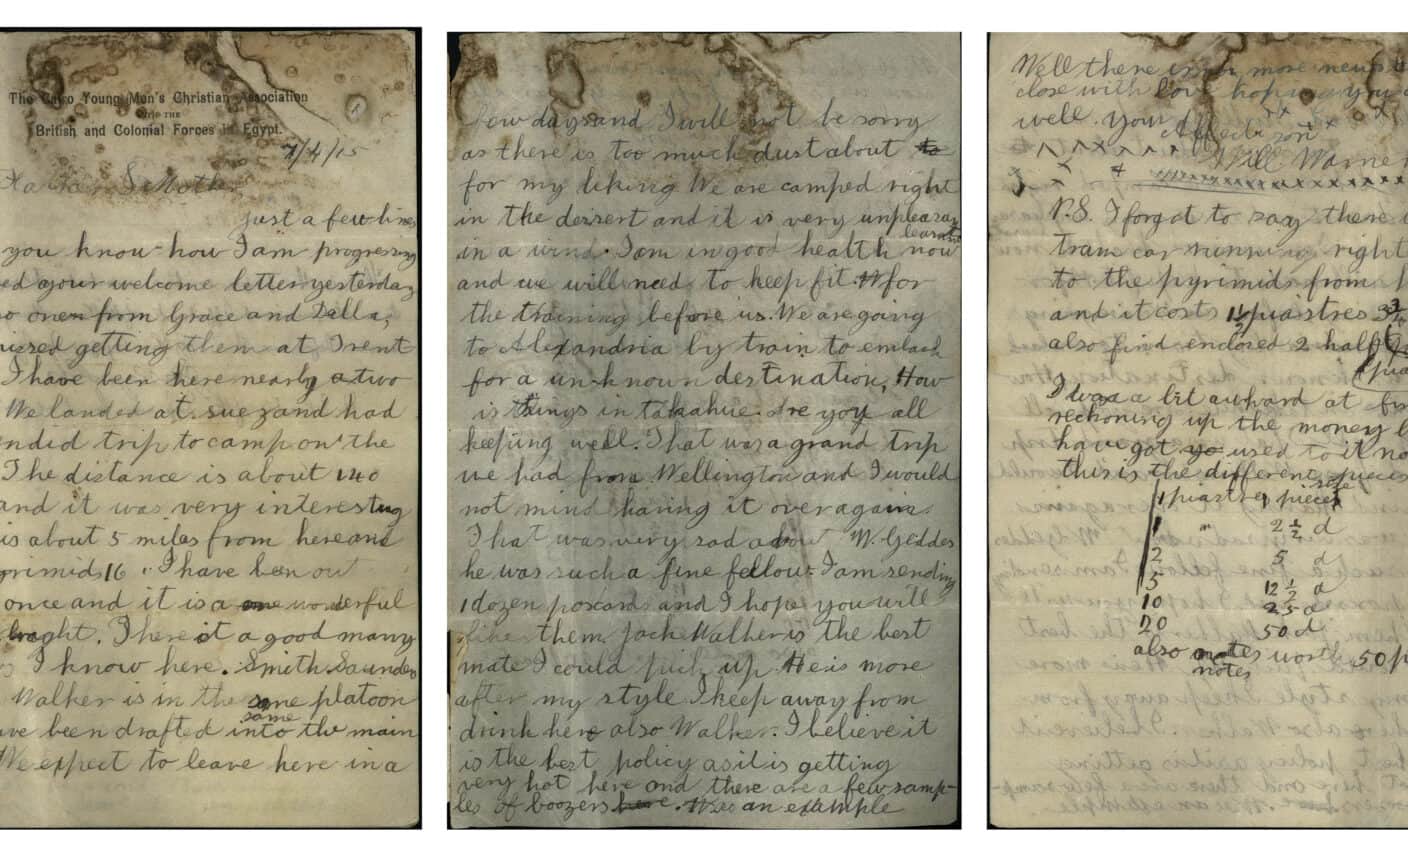 The Cairo Young Men's Christian Association
WITH THE
British and Colonial Forces in Egypt.
7/4/15
just a few lines
you know how I am progressing
ed your welcome letter yesterday
so ones from Grace and Della,
issed getting them at Trent
I have been here nearly a two
We landed at suez and had
ndid trip to camp on the
The distance is about 140
and it was very interesting
is about 5 miles from here and
rimids 16 " I have been out
once and it is a one wonderful
There it a good many
I know here. Smith Saunders
Walker is in the same platoon
same
ve been drafted into the main
We expect to leave here in a
few days and I will not be sorry
as there is too much dust about to
for my liking We are camped right
in the dessert and it is very unpleasan
leasant
in a wind. I am in good health now
and we will need to keep fit for
the training before us. We are going
to Alexandria by train to embark
for a unknown destination, How
is things in takahue. Are you all
keeping well. That was a grand trip
we had from Wellington and I would
not mind having it over again.
That was very sad about W. Geddes
he was such a fine fellow. I am sending
1 dozen poscards and I hope you will
like them Jack Walker is the best
mate I could pick up. He is more
after my style I keep away from
drink here also Walker. I believe it
is the best policy as it is getting
very hot here and there are a few samp-
les of boozers here. an example
Well there is no more news
close with love hoping you
well your Affect son
Will Warne
P.S. I forgot to say there
tram car running right
to the pyrimids from
and it costs 1½ piastres 3¾
also find enclosed 2 half
I was a bit awkard at
reckoning up the money
have got yo used to it no
this is the different pieces
size
1 piastre pieces
1 " 2½ d
2 5 d
5 12½ d
10 25 d
20 50 d
also notes worth 50 p
notes